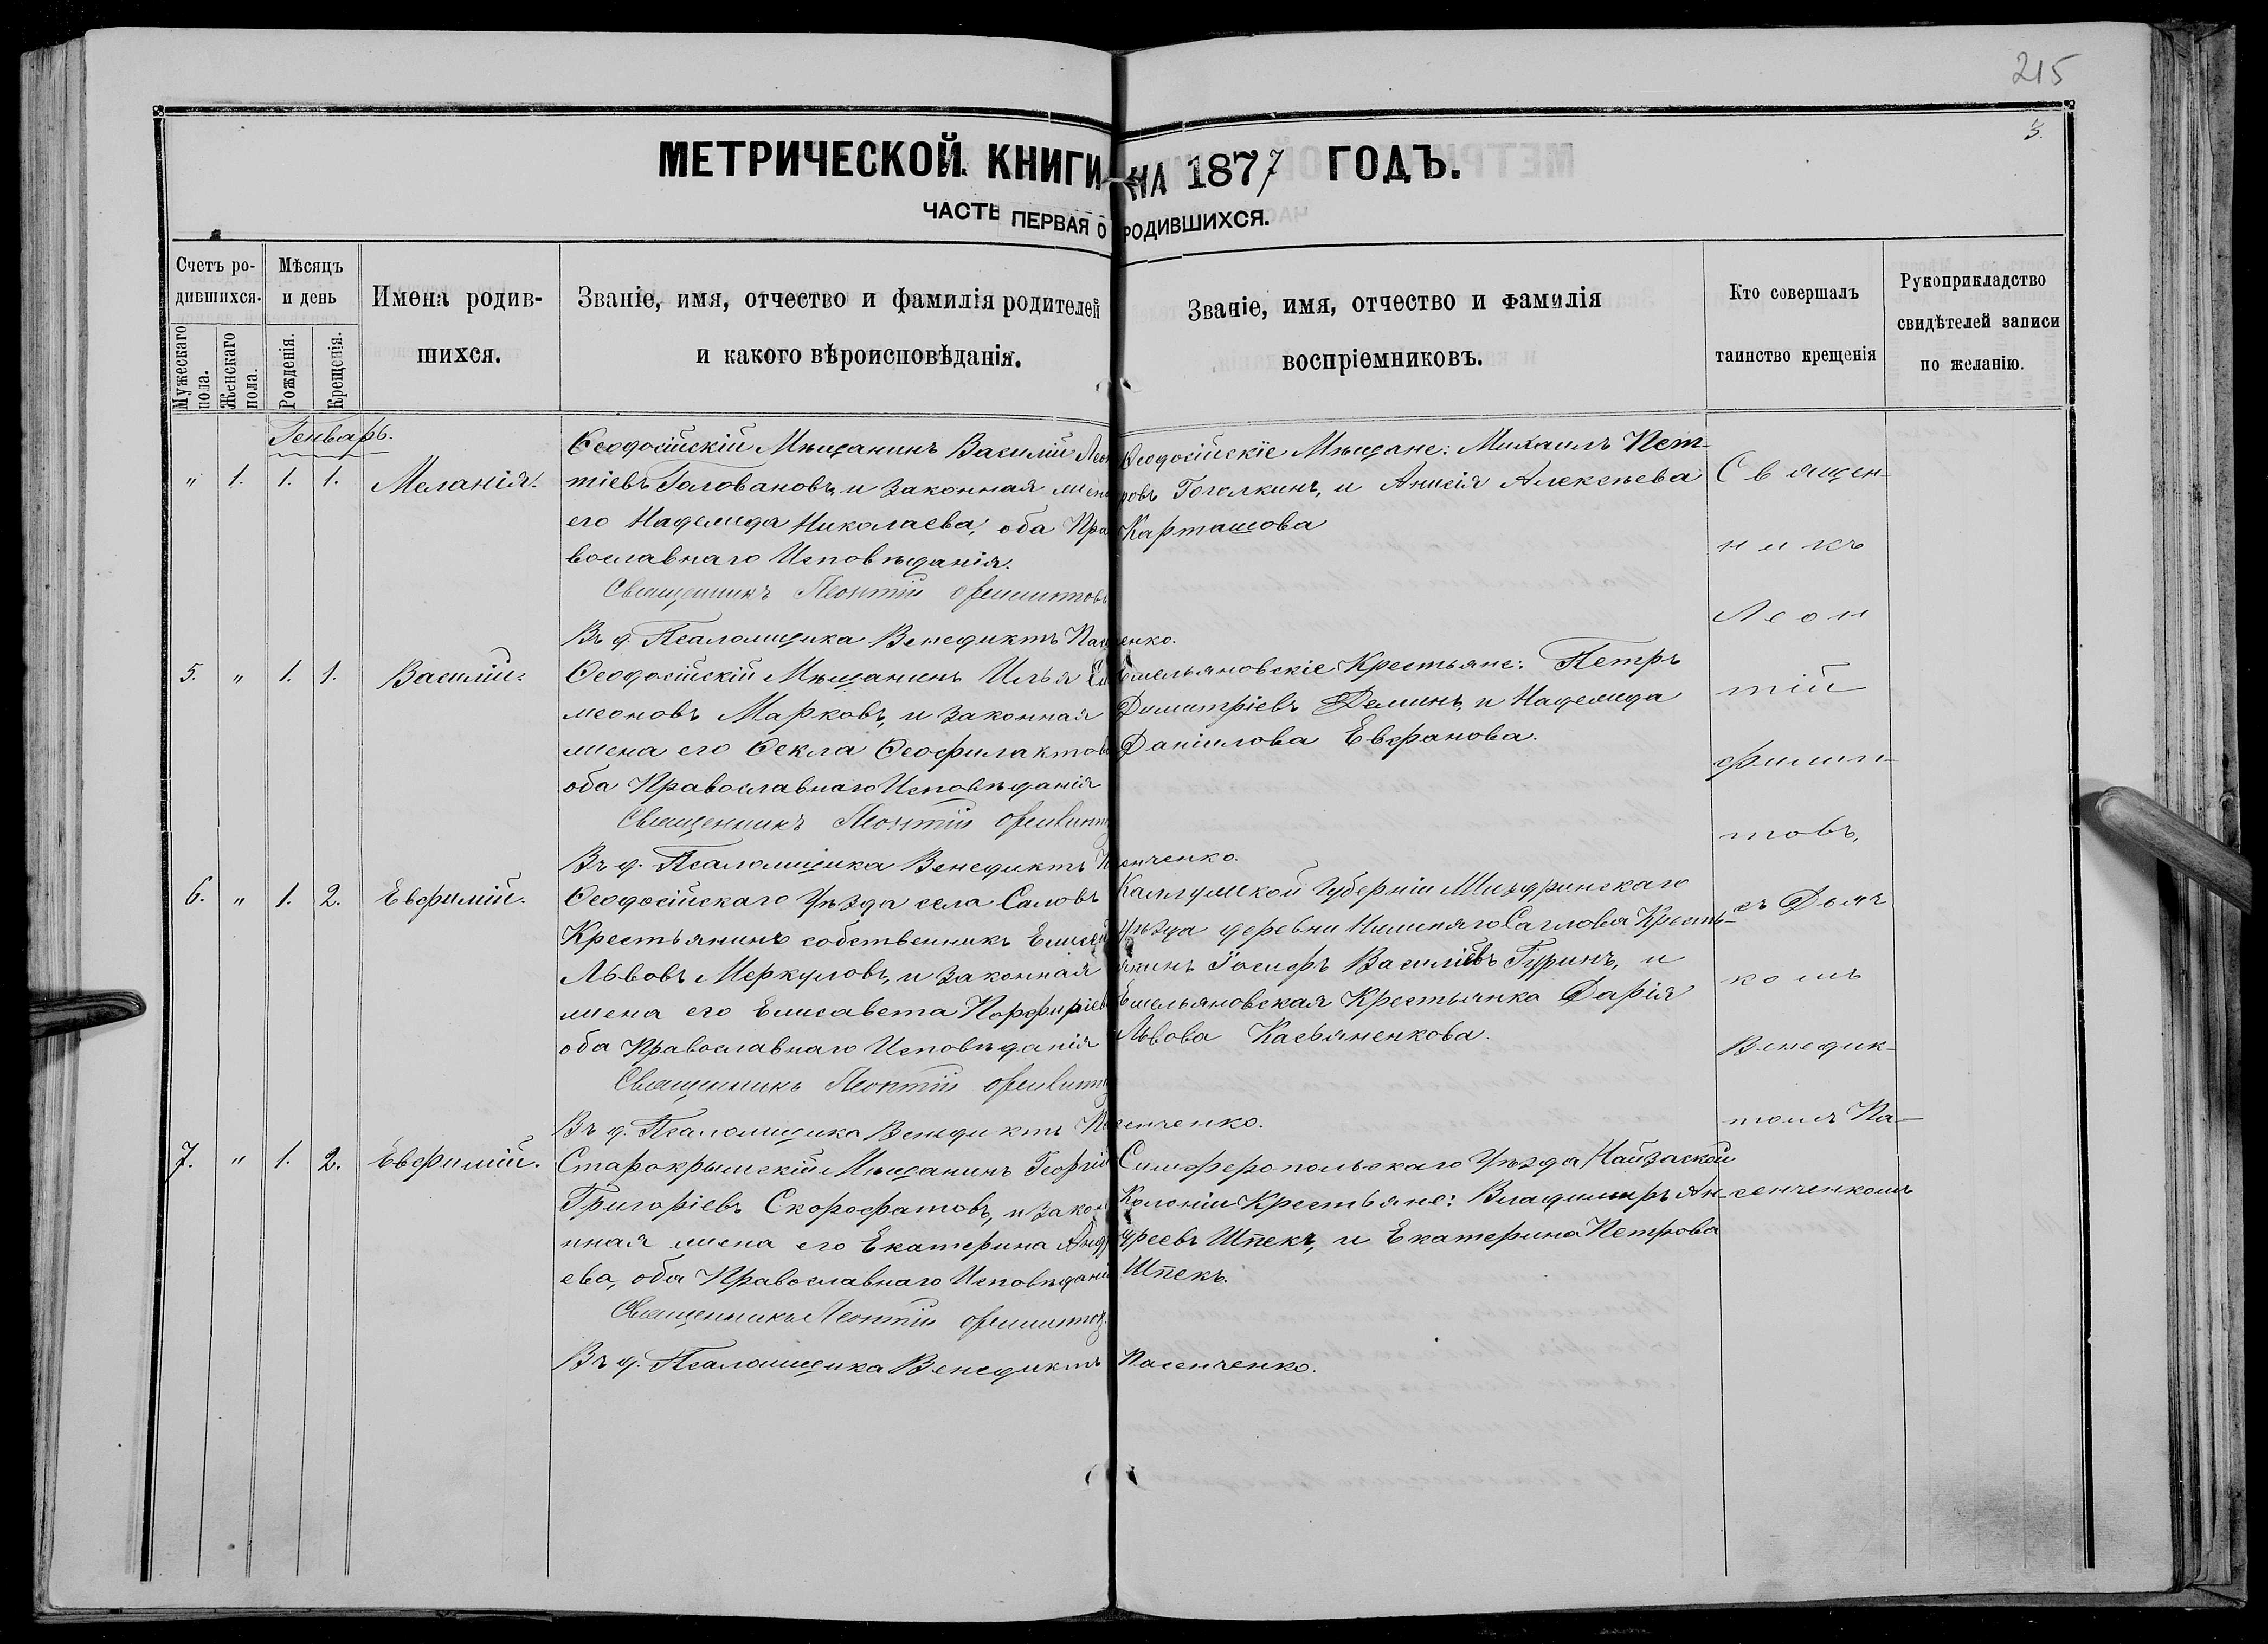 215
3.
МЕТРИЧЕСКОЙ КНИГИ НА 1877 ГОДЪ.
ЧАСТЬ ПЕРВАЯ О РОДИВШИХСЯ.
Счетъ ро-
дившихся.
Мужескаго пола.
Женскаго пола.
Мѣсяцъ
и день
Рожденія.
Крещенія.
Имена родив-
шихся.
Званіе, имя, отчество и фамилія родителей
и какого вѣроисповѣданія.
Званіе, имя, отчество и фамилія
воспріемниковъ.
Кто совершалъ
таинство крещенія
Рукоприкладство
свидѣтелей записи
по желанію.
Генварь.
" 1. 1. 1. Меланія.
Ѳеодосійскій Мѣщанинъ Василій Леон
тіевъ Головановъ, и законная жена
его Надежда Николаева, оба Пра
вославнаго Исповѣданія.
Священникъ Леонтій
Въ д. Псаломщика Венедиктъ Пасенченко.
Ѳеодосійскіе Мѣщане: Михаилъ Пет-
ровъ Гоголкинъ, и Анисія Алексѣева
Карташова
5. " 1. 1. Василій.
Ѳеодосійскій Мѣщанинъ Илья Си
меоновъ Марковъ, и законная
жена его Ѳекла Ѳеофилактов
оба Православнаго Исповѣданія
Священникъ Леонтій
Въ д. Псаломщика Венедиктъ Пасенченко.
Емельяновскіе Крестьяне: Петръ
Димитріевъ Деминъ, и Надежда
Даніилова Евфанова.
6. " 1. 2. Евфимій.
Ѳеодосійскаго Уѣзда села Саловъ
Крестьянинъ собственникъ Елисей
Львовъ Меркуловъ, и законная
жена его Елисавета Порфиріев
оба Православнаго Исповѣданія
Священникъ Леонтій
Въ д. Псаломщика Венедиктъ Пасенченко.
Калужской Губерніи
Уѣзда деревни Нижняго Саглова Кресть-
янинъ Іосифъ Василіевъ Гуринъ, и
Емельяновская Крестьянка Дарія
Львова Касьяненкова.
7. " 1. 2. Евфимій.
Старокрымскій Мѣщанинъ Георгій
Григоріевъ Скорофатовъ, и закон
ная жена его Екатерина Андр
ева, оба Православнаго Исповѣдані
Священникъ Леонтій
Въ д. Псаломщика Венедиктъ Пасенченко.
Симферопольскаго Уѣзда Найзаской
Колоніи Крестьяне: Владимиръ Ан-
дреевъ Шпекъ, и Екатерина Петрова
Шпекъ.
Священ-
никъ
Леон
тій
Филип-
товъ,
съ Дьяч
комъ
Венедик-
томъ Па-
сенченкомъ